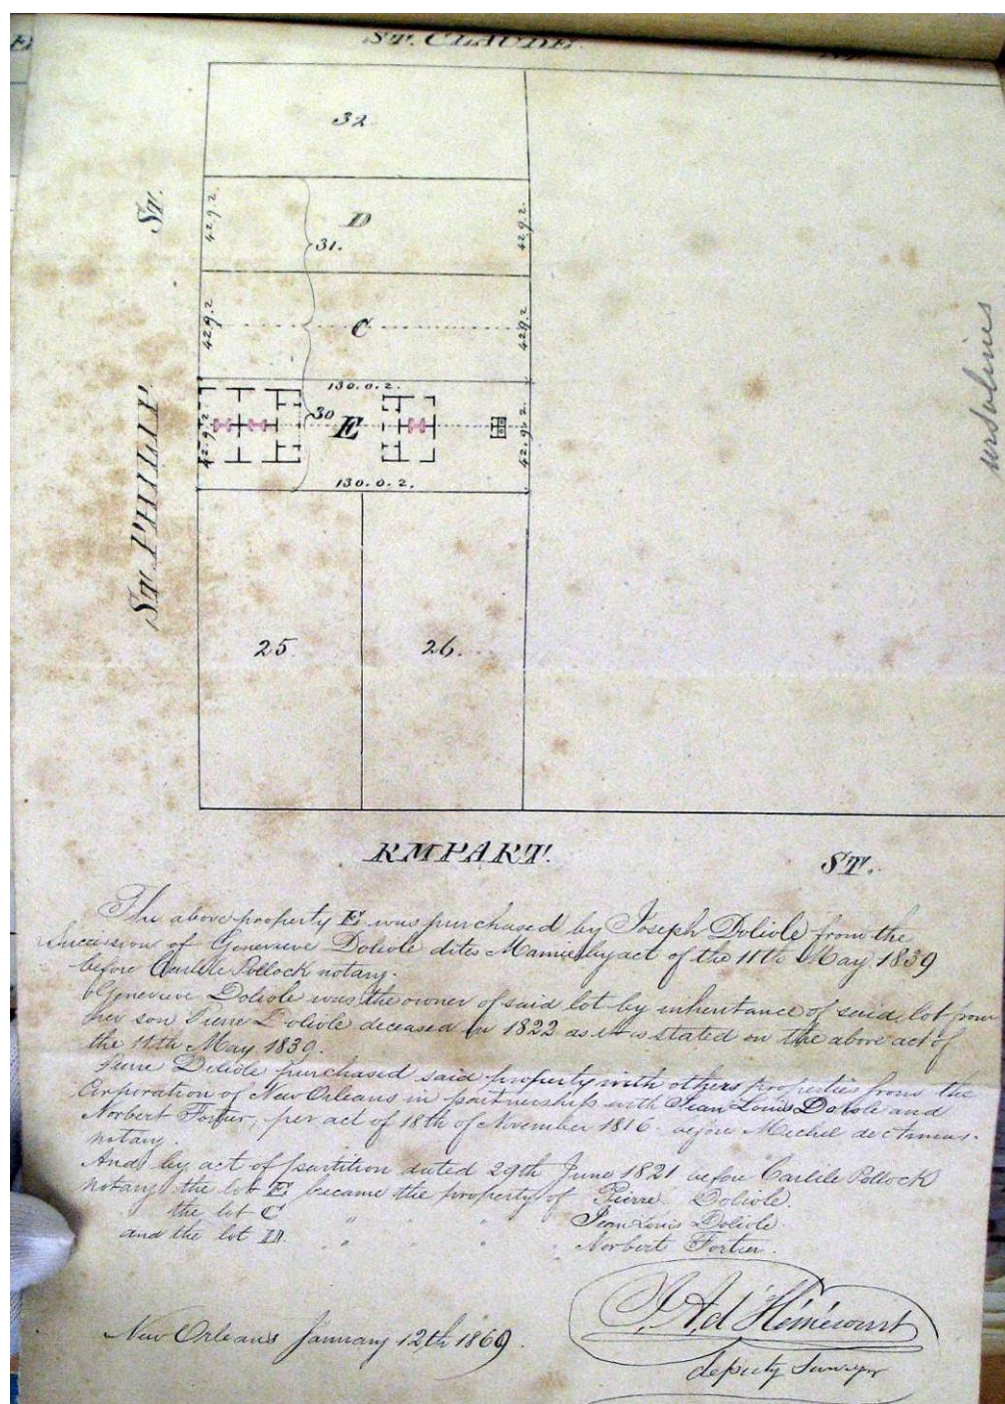 ST. CLAUDE.
32
ST.
42.9.2
D
42.9.2.
31.
42.9.2
C
42.9.2
ursulines
130.0.2.
ST. PHILIP
42.9.2.
30
E
42.9.2.
130.0.2.
25
26.
RMPART.
ST.
The above property E was purchased by Joseph Doliole from the
Succession of Genevieve Doliole dite Mamie by act of the 11th May 1839
before Carlile Pollock notary.
Genevieve Doliole was the owner of said lot by inheritance of said lot from
her son Pierre Doliole deceased in 1822 as it is stated on the above act of
the 11th May 1839.
Pierre Doliole purchased said property with others properties from the
Corporation of New Orleans in partnership with Jean Louis Doliole and
Norbert Fortier, per act of 18th of November 1816 before Michel de Armas.
notary.
And by act of partition dated 29th June 1821 before Carlile Pollock
notary the lot E became the property of Pierre Doliole.
the lot C " " " Jean Louis Doliole.
and the lot D. " " " Norbert Fortier.
New Orleans January 12th 1869.
J. A. d'Hémécourt
deputy Surveyor